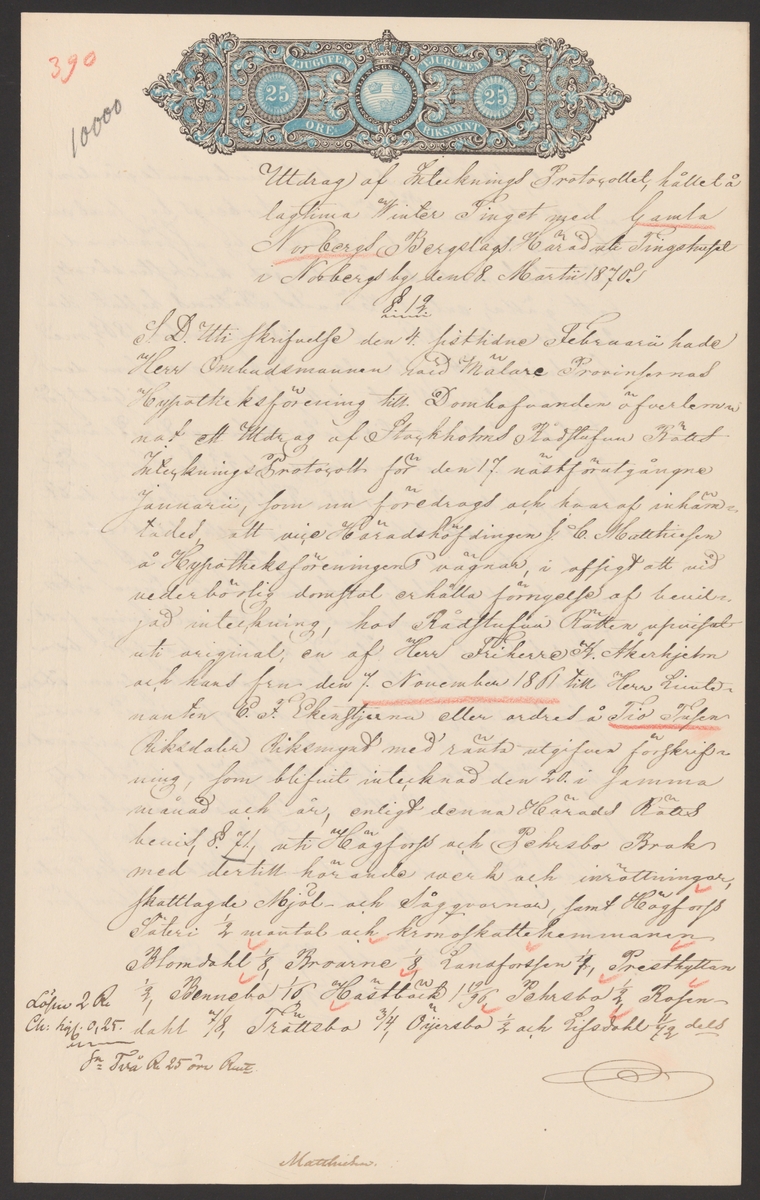 390
10000
TJUGUFEM TJUGUFEM
25 25
ÖRE RIKSMYNT
Utdrag af Intecknings Protocollet, hållet å
lagtima Winter Tinget med Gamla
Norbergs Bergslags Härad uti Tingshuset
i Norbergs by den 8. Martii 1870.
§ 19
S. D. Uti skrifvelse den 4. sisttidne Februarii hade
Herr Ombudsmannen vid Mälare Provinsernas
Hypotheksförening till Domhafvanden öfverlem-
nat ett Utdrag af Stockholms Rådstufvu Rätts
Intecknings Protocoll för den 17. nästförutgångne
Januarii, som nu föredrogs och hvaraf inhäm-
tades, att vice Häradshöfdingen J. C. Matthiesen
å Hypotheksföreningens vägnar, i afsigt att vid
vederbörlig domstol erhålla förnyelse af bevil-
jad inteckning, hos Rådstufvu Rätten uppvisat
uti original, en af Herr Friherre K. Åkerhjelm
och hans fru den 7. November 1861 till Herr Lieute-
nanten C. F. Ekenstjerna eller ordres å Tio Tusen
Riksdaler Riksmynt med ränta utgifven förskrif-
ning, som blifvit intecknad den 20. i samma
månad och år, enligt denna Härads Rätts
bevis, § 71, uti Högforss och Pehrsbo Bruk
med dertill hörande werk och inrättningar,
skattlagde Mjöl- och Sågqvarnar, samt Högforss
Säteri 1/2 mantal och kronoskattehemmanen
Blomdahl 1/8, Broarne 1/8, Landforssen 1/4, Presthyttan
1/2, Bennebo 1/6, Hästbäck 1 1/96, Pehrsbo 1/2, Rosen-
dahl 7/8, Trättsbo 3/4, Öijersbo 1/2 och Lifsdahl 1/12 dels
Lösen 2 Rd
Ch: kgf. 0,25.
Sn Två Rd 25 öre Rmt.
Matthiesen.